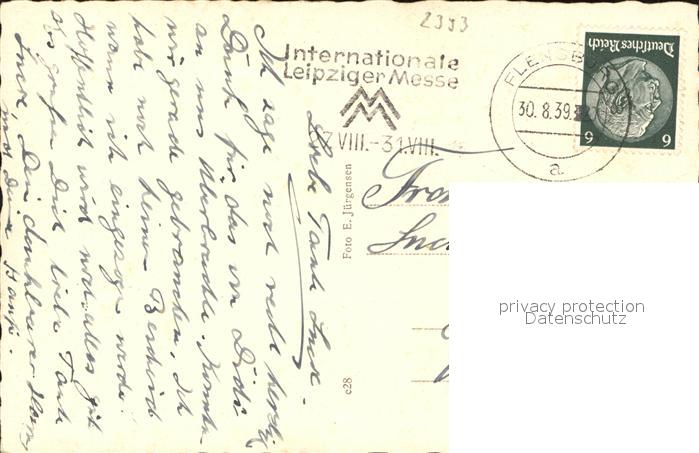 2353
Internationale
Leipziger Messe
27.VIII.-31.VIII.
FLENSBURG
30.8.39.
a
Deutsches Reich
6 6
Liebe Tante
Ich sage noch recht herzlich
Dank für das von Dir
an uns Überbrachte. Konnten
wir gerade gebrauchen. Ich
habe noch keinen Bescheid
wann ich eingezogen werde.
Hoffentlich wird noch alles gut
Es grüßen Dich liebe Tante
Dein dankbarer
und Hansi.
Foto E. Jürgensen
c28
privacy protection
Datenschutz